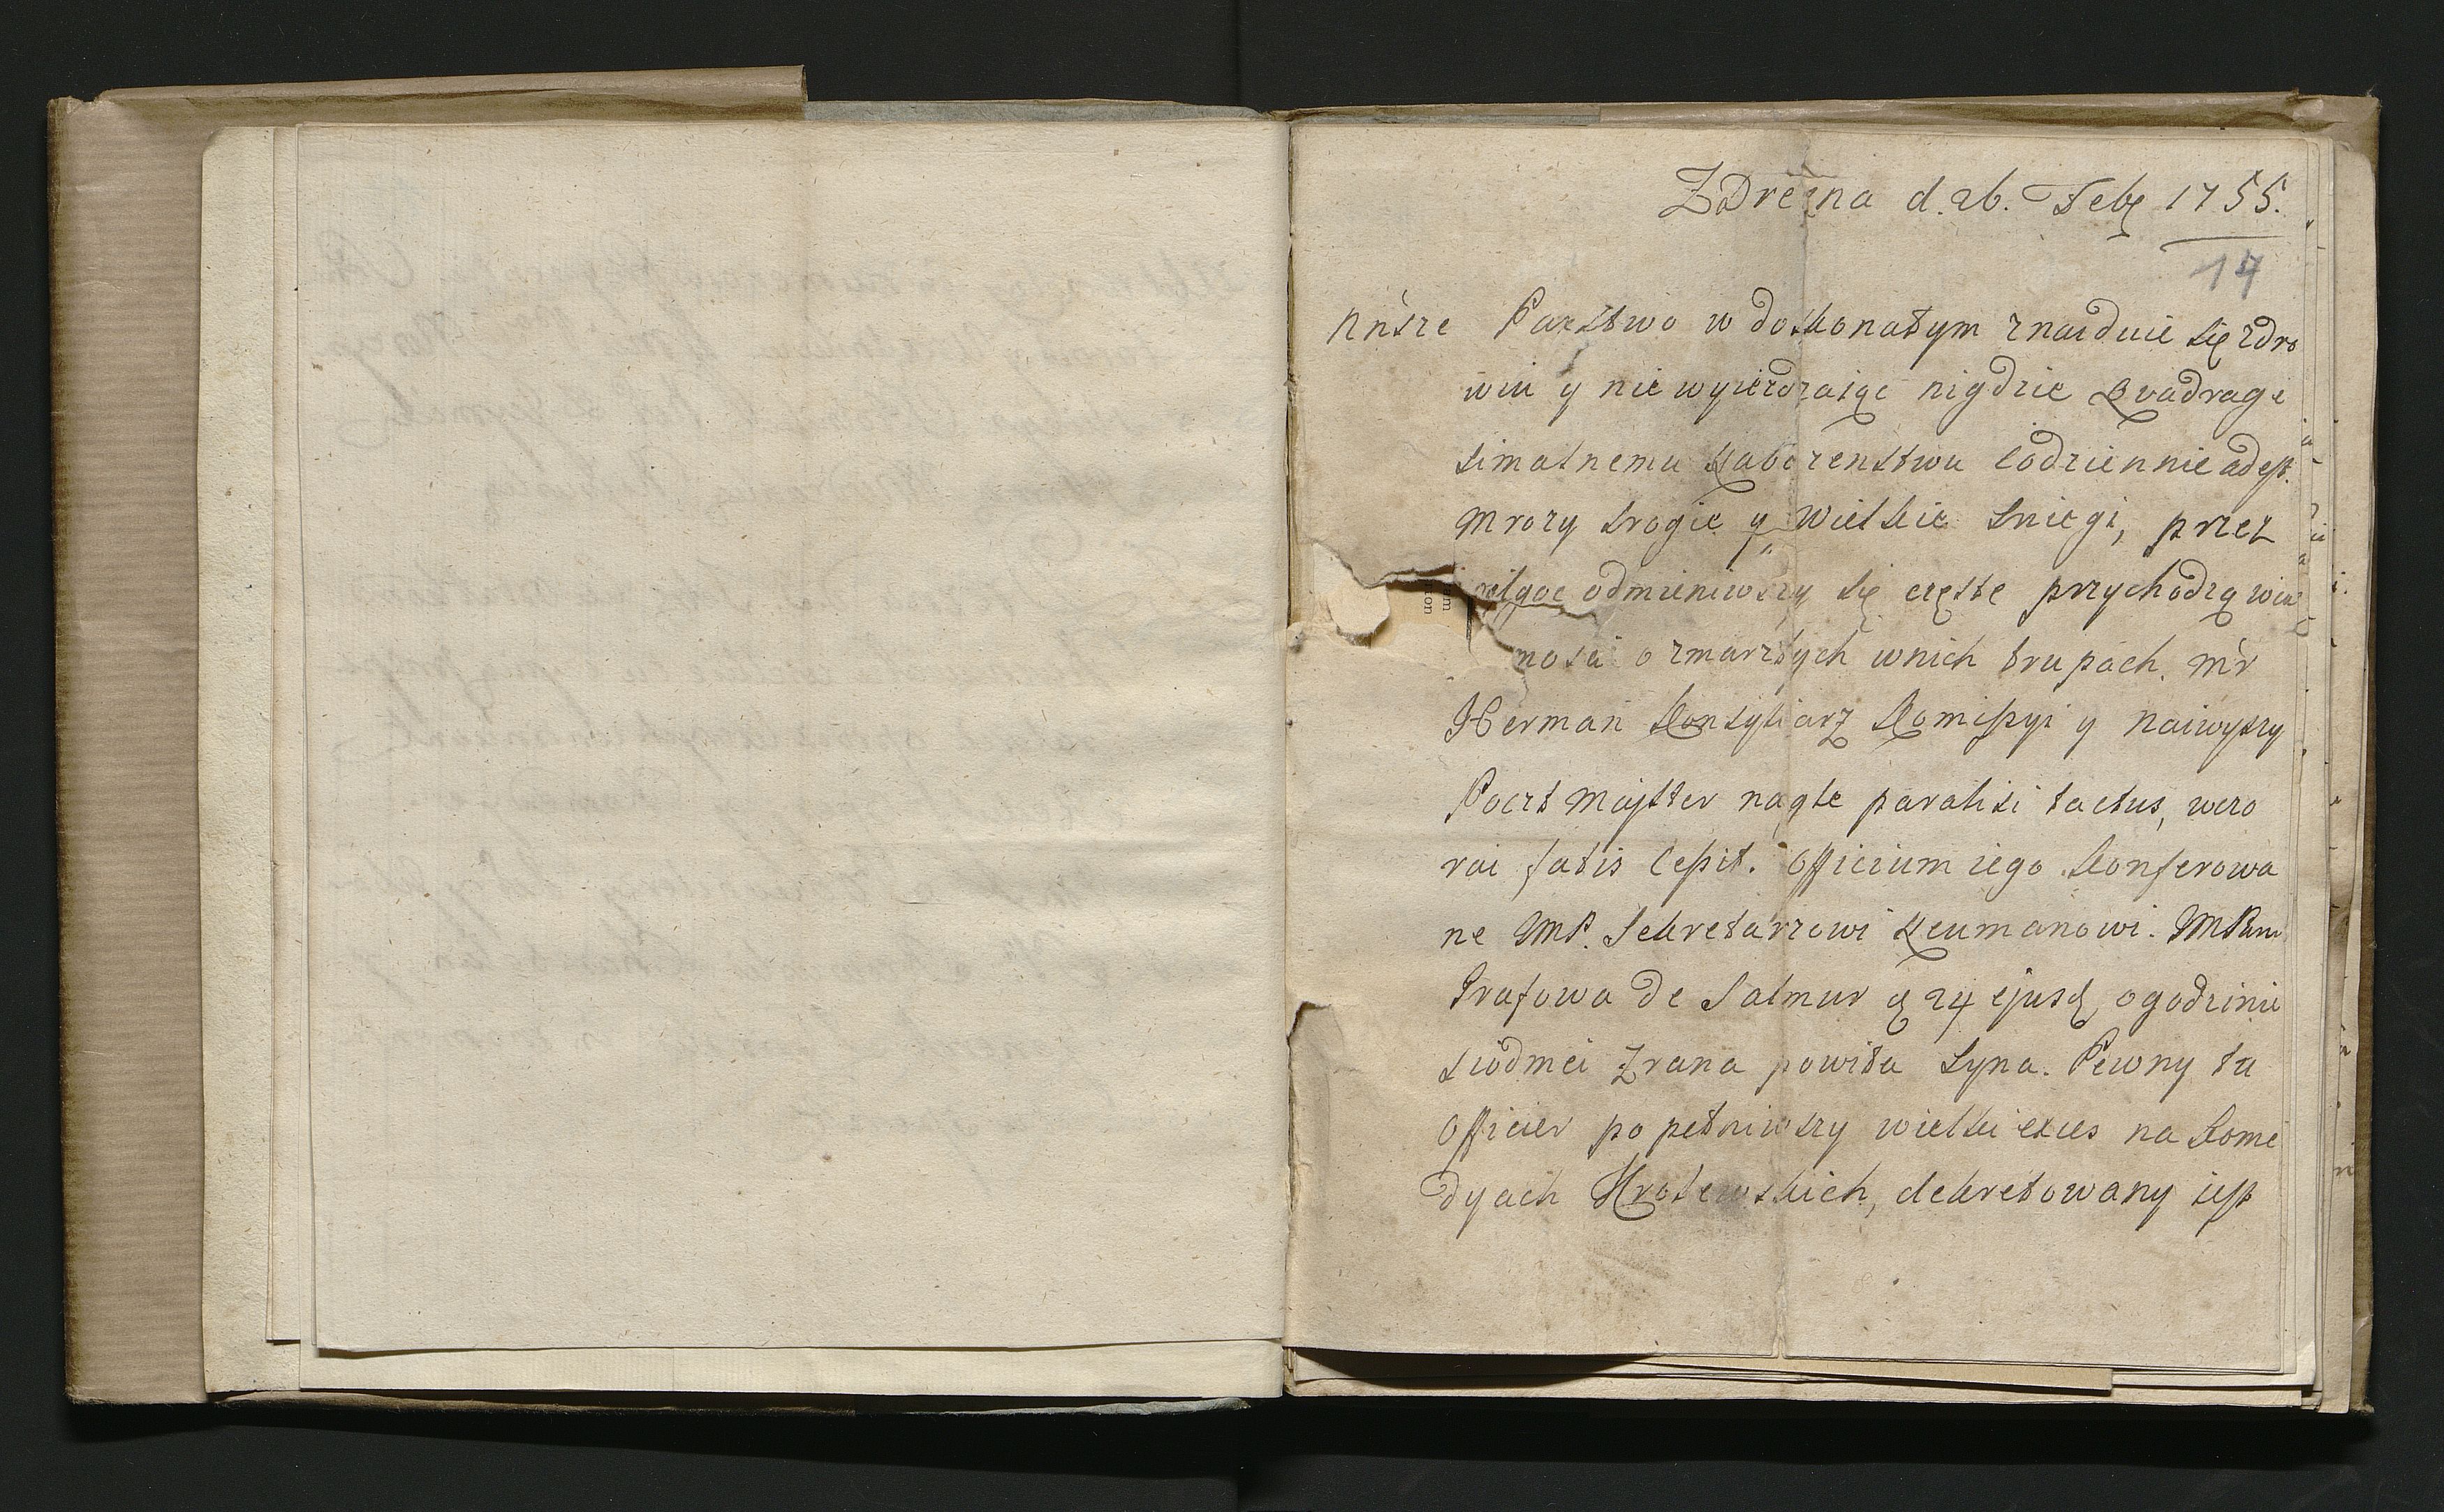 Z Drezna d. 26. Febr 1755.
14
Nńsze Państwo w doskonałym znaiduie się zdro
wiu y nie wyieżdzaiąc nigdzie Quadrage
simalnemu Nabożeństwu codziennie adest.
Mrozy srogie y Wielkie Sniegi, przez
wilgoc odmieniwszy się częste przychodzą wia
mosci o zmarzłych w nich trupach. Mr
Herman Konsyliarz Komissyi y naiwyszy
Poczt Majster nagle paralisi tactus, wczo
rai fatis cessit. Officium iego konferowa
ne JMP. Sekretarzowi Neumanowi. JMPani
Grafowa de Salmur d 24 ejusd, o godzinie
siodmei Zrana powiła Syna. Pewny tu
Officier popełniwszy wielki exces na Kome
dyach Krolewskich, dekretowany iest